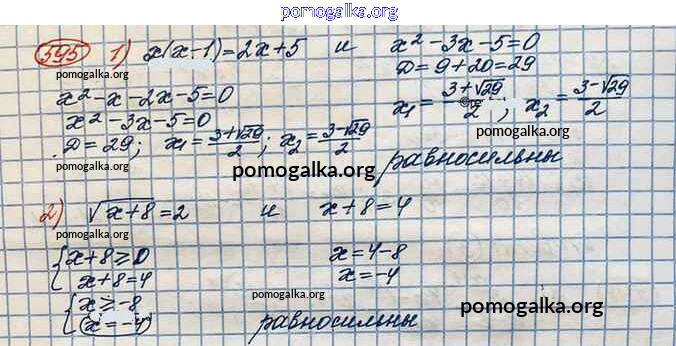 pomogalka.org
595 1) x(x-1)=2x+5 и x²-3x-5=0
pomogalka.org
D=9+20=29
x²-x-2x-5=0
x₁=3+√29/2; x₂=3-√29/2
x²-3x-5=0
pomogalka.org
D=29; x₁=3+√29/2; x₂=3-√29/2
pomogalka.org
pomogalka.org
равносильны
2) √x+8=2 и x+8=4
pomogalka.org
{x+8≥0
x+8=4
x=4-8
x=-4
{x≥-8
(x=-4)
pomogalka.org
pomogalka.org
равносильны